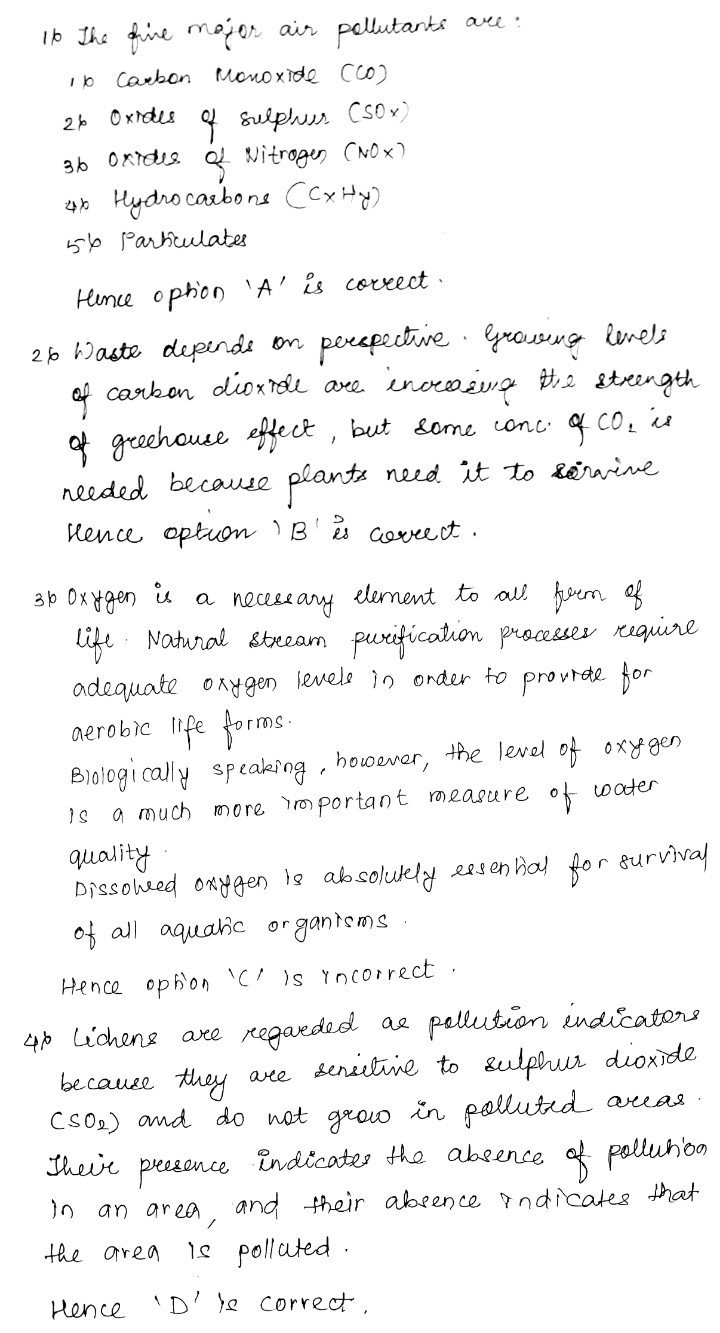 1) The five major air pollutants are :
1) Carbon Monoxide (CO)
2) Oxides of sulphur (SOx)
3) Oxides of Nitrogen (NOx)
4) Hydrocarbons (CxHy)
5) Particulates
Hence option 'A' is correct.
2) Waste depends on perspective. Growing levels
of carbon dioxide are increasing the strength
of greehouse effect, but some conc. of CO₂ is
needed because plants need it to servive
Hence option 'B' is correct.
3) Oxygen is a necessary element to all form of
life. Natural stream purification processes require
adequate oxygen levels in order to provide for
aerobic life forms.
Biologically speaking, however, the level of oxygen
is a much more important measure of water
quality.
Dissolved oxygen is absolutely essential for survival
of all aquatic organisms.
Hence option 'C' is incorrect.
4) Lichens are regarded as pollution indicators
because they are sensitive to sulphur dioxide
(SO₂) and do not grow in polluted areas.
Their presence indicates the absence of pollution
in an area, and their absence indicates that
the area is polluted.
Hence 'D' is correct.